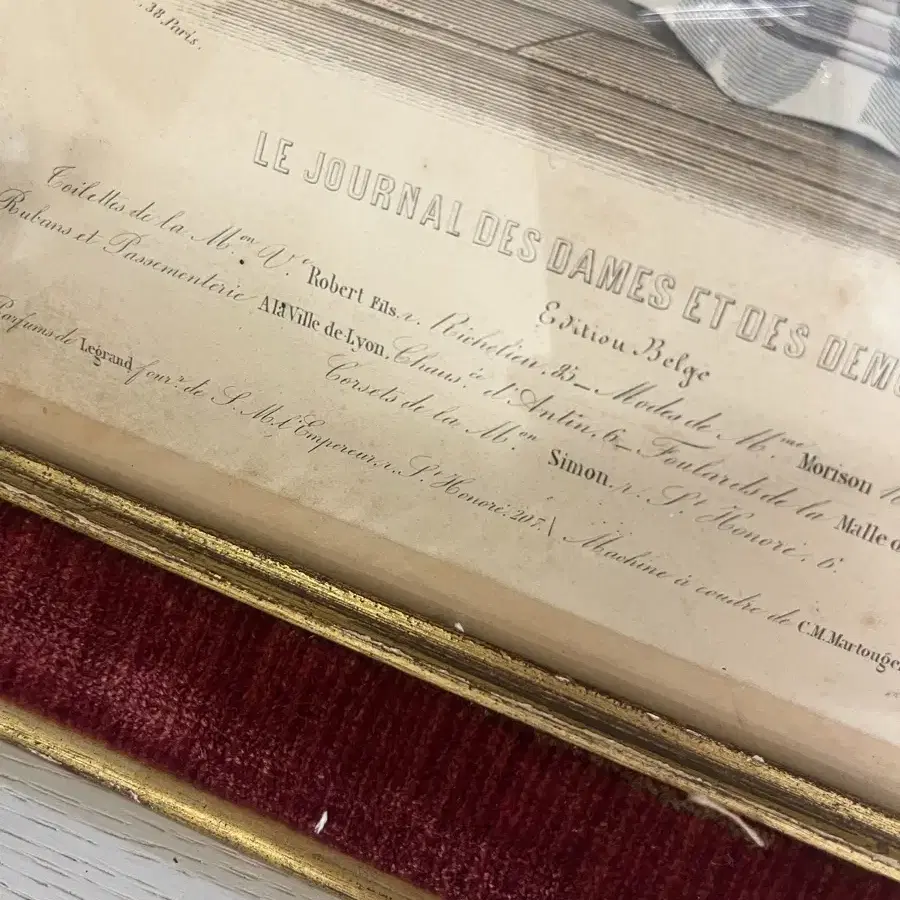 38, Paris.
LE JOURNAL DES DAMES ET DES DEM
Edition Belge
Toilettes de la M.on V.ve Robert Fils, r. Richelieu, 85_ Modes de M.me Morison
Rubans et Passementerie A la Ville de Lyon, Chaus.ée d'Antin, 6_ Foulards de la Malle
Corsets de la M.on Simon, r. St Honoré, 6.
Parfums de Legrand four.r de S. M. l'Empereur, r. St Honoré, 207. \ Machine à coudre de C.M. Martouge